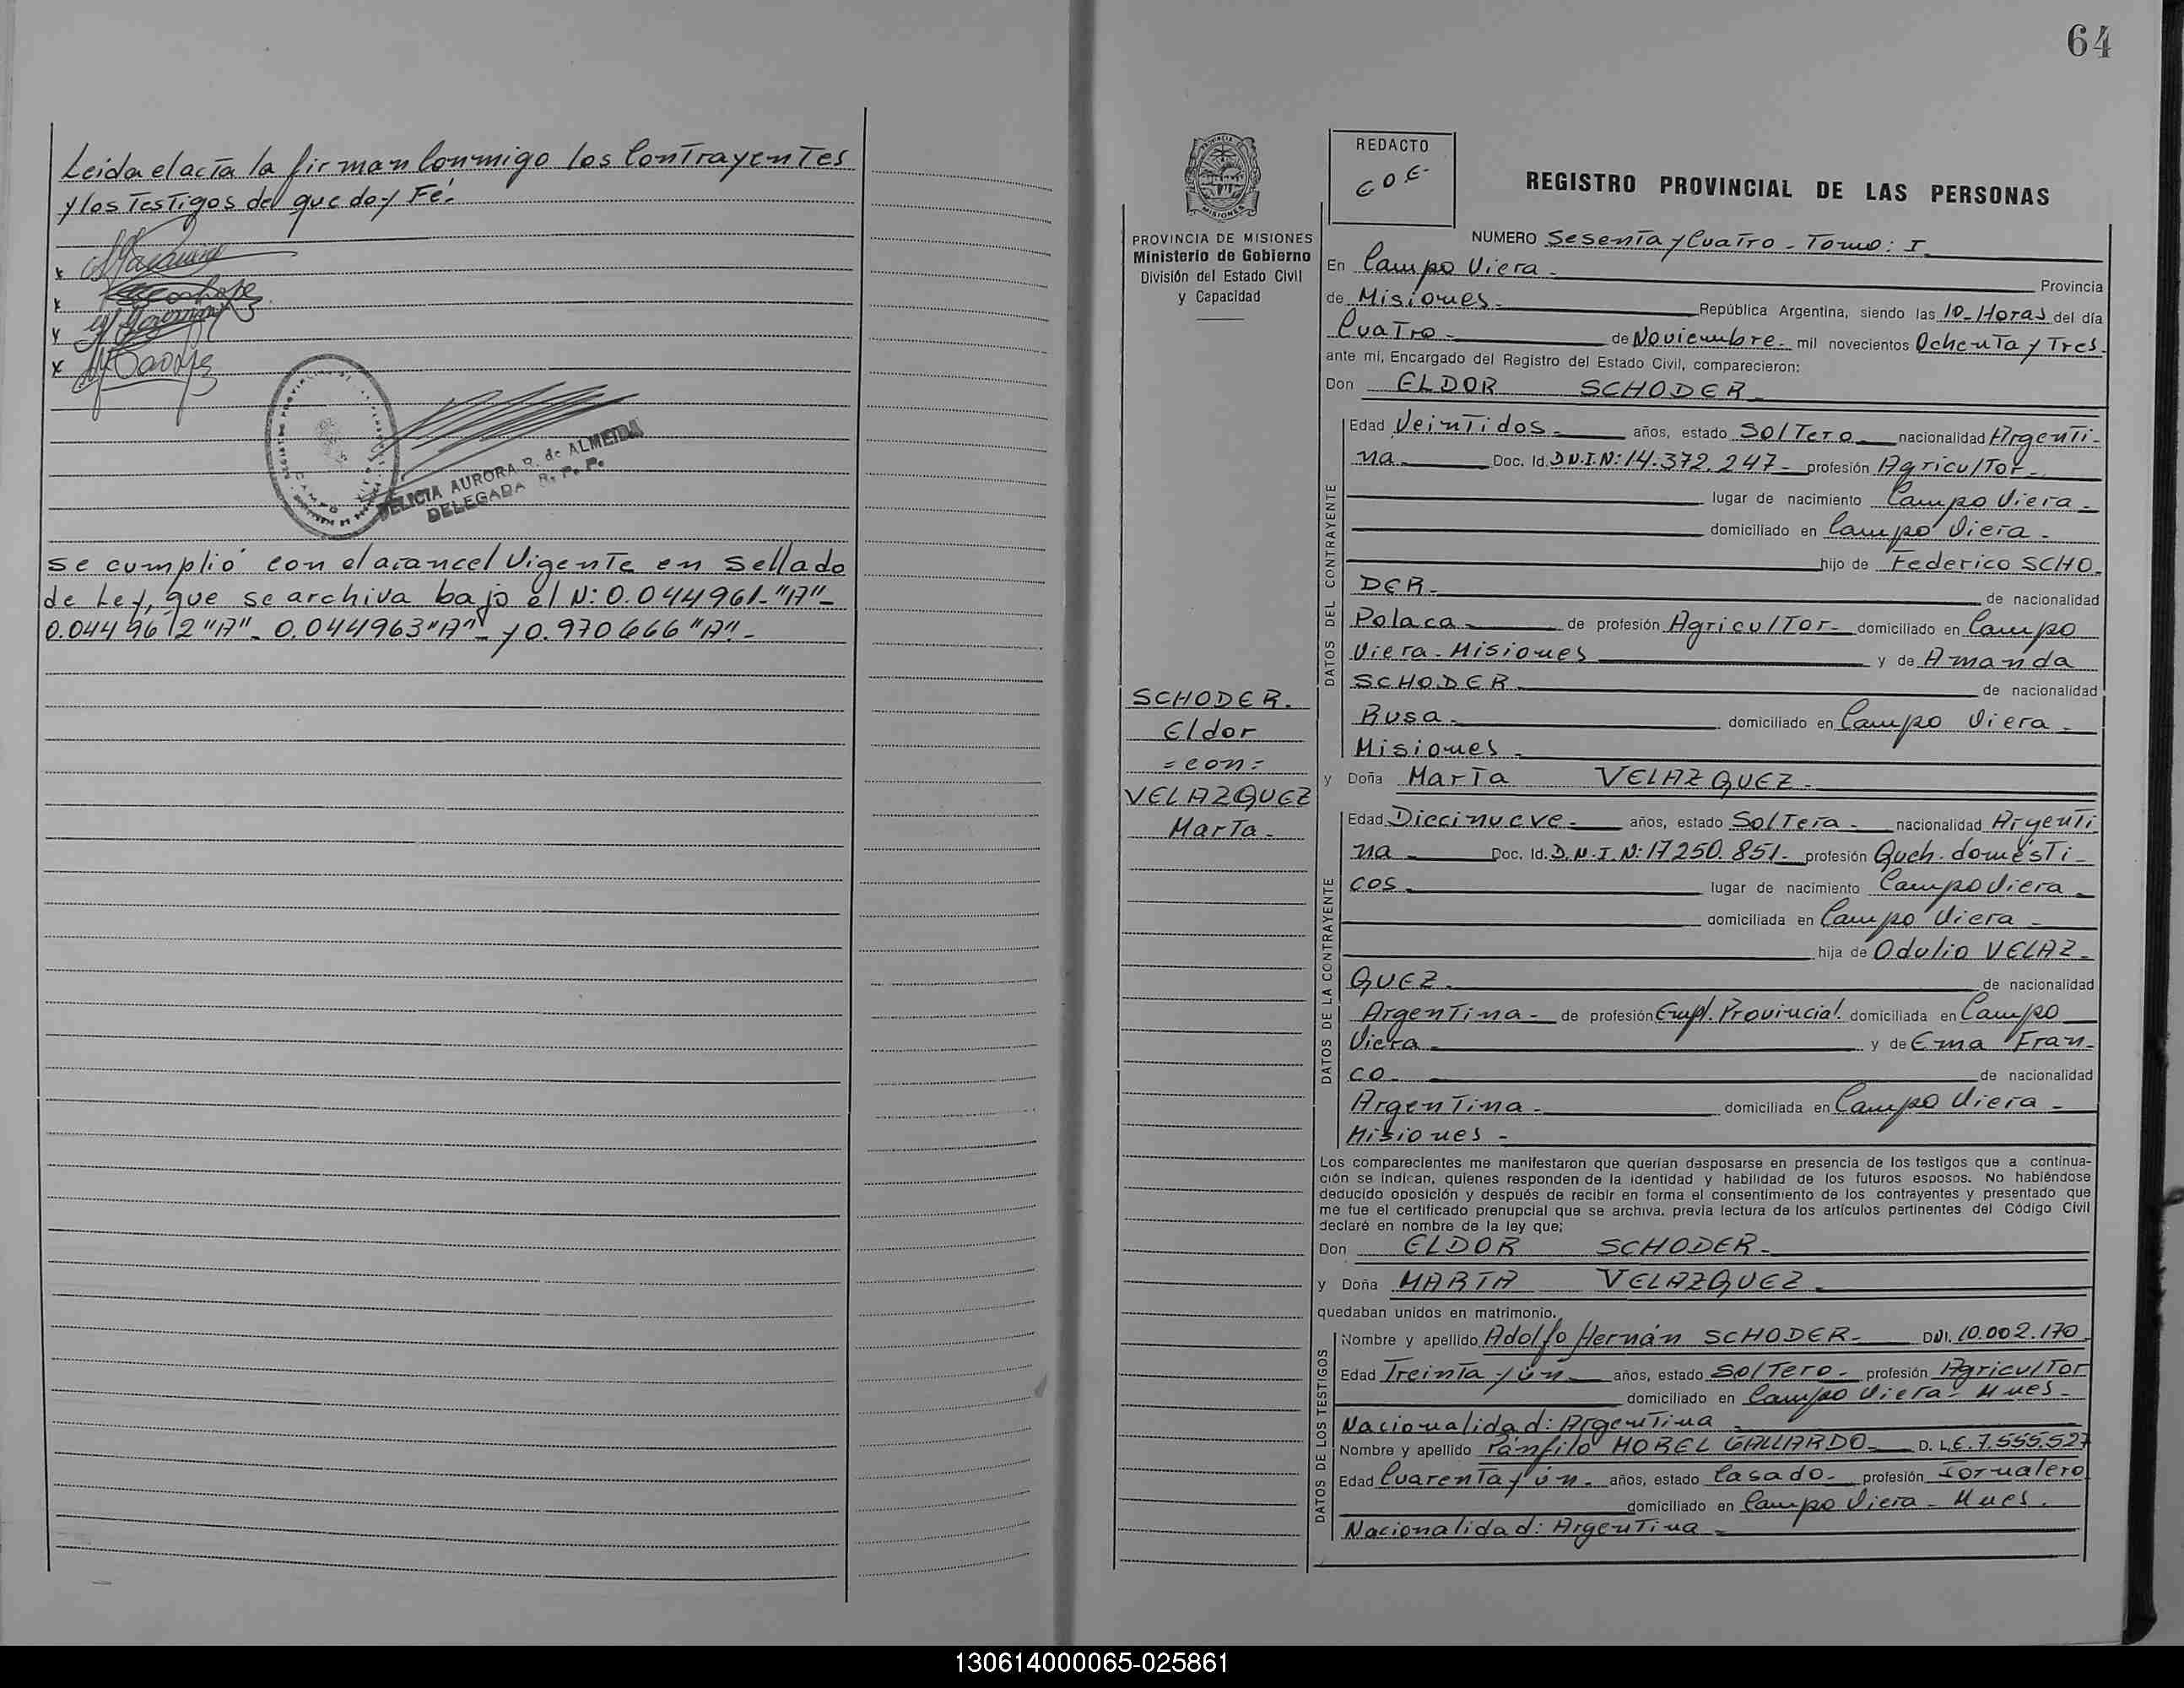 Leida el acta la firman Conmigo los Contrayentes
y los Testigos de que doy Fé.
DELICIA AURORA R. de ALMEIDA
DELEGADA R. P. P.
se cumplió con el arancel Vigente en Sellado
de Ley, que se archiva bajo el N: 0.044961-"A"-
0.044962"A"- 0.044963"A"- y 0.970666"A".-
64
PROVINCIA DE MISIONES
Ministerio de Gobierno
División del Estado Civil
y Capacidad
SCHODER.
Eldor
=con=
VELAZQUEZ
Marta-
REDACTO
REGISTRO PROVINCIAL DE LAS PERSONAS
NUMERO Sesenta y Cuatro - Tomo: I
En Campo Viera - Provincia
de Misiones.- República Argentina, siendo las 10-Horas del día
Cuatro - de Noviembre - mil novecientos Ochenta y Tres.
ante mí, Encargado del Registro del Estado Civil, comparecieron:
Don ELDOR SCHODER-
DATOS DEL CONTRAYENTE
Edad Veintidos- años, estado Soltero- nacionalidad Argenti-
na- Doc. Id. D.N.I.N: 14.372.247- profesión Agricultor-
lugar de nacimiento Campo Viera-
domiciliado en Campo Viera-
hijo de Federico SCHO-
DER- de nacionalidad
Polaca- de profesión Agricultor- domiciliado en Campo
Viera - Misiones y de Amanda
SCHODER de nacionalidad
Rusa- domiciliado en Campo Viera-
Misiones-
y Doña Marta VELAZQUEZ-
DATOS DE LA CONTRAYENTE
Edad Diecinueve- años, estado Soltera- nacionalidad Argenti
na- Doc. Id. D.N.I.N: 17.250.851- profesión Queh. domésti-
cos- lugar de nacimiento Campo Viera-
domiciliada en Campo Viera-
hija de Odulio VELAZ-
QUEZ- de nacionalidad
Argentina- de profesión Empl. Provincial. domiciliada en Campo
Viera- y de Ema Fran-
co- de nacionalidad
Argentina- domiciliada en Campo Viera-
Misiones-
Los comparecientes me manifestaron que querían desposarse en presencia de los testigos que a continua-
ción se indican, quienes responden de la identidad y habilidad de los futuros esposos. No habiéndose
deducido oposición y después de recibir en forma el consentimiento de los contrayentes y presentado que
me fue el certificado prenupcial que se archiva, previa lectura de los artículos pertinentes del Código Civil
declaré en nombre de la ley que;
Don ELDOR SCHODER-
y Doña MARTA VELAZQUEZ-
quedaban unidos en matrimonio.
DATOS DE LOS TESTIGOS
Nombre y apellido Adolfo Hernán SCHODER- DNI. 10.002.170
Edad Treinta y ún- años, estado Soltero- profesión Agricultor
domiciliado en Campo Viera- Mnes-
Nacionalidad: Argentina-
Nombre y apellido Pánfilo MOREL GALLARDO- D. L.E. 7.555.527
Edad Cuarenta y ún- años, estado Casado- profesión Jornalero
domiciliado en Campo Viera- Mnes.
Nacionalidad: Argentina-
130614000065-025861